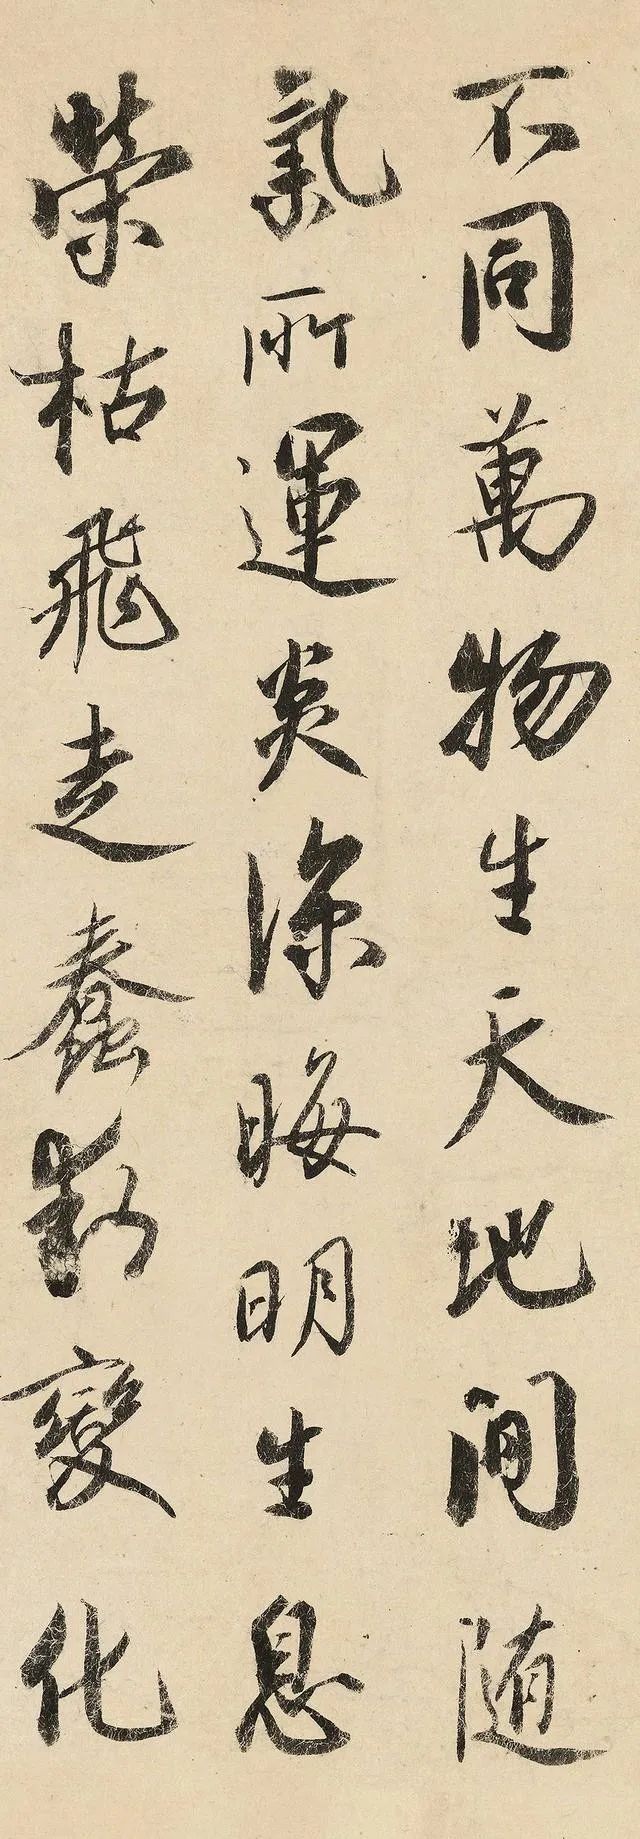 不同萬物生天地间随
氣所運炎涼晦明生息
榮枯飛走蠢動變化